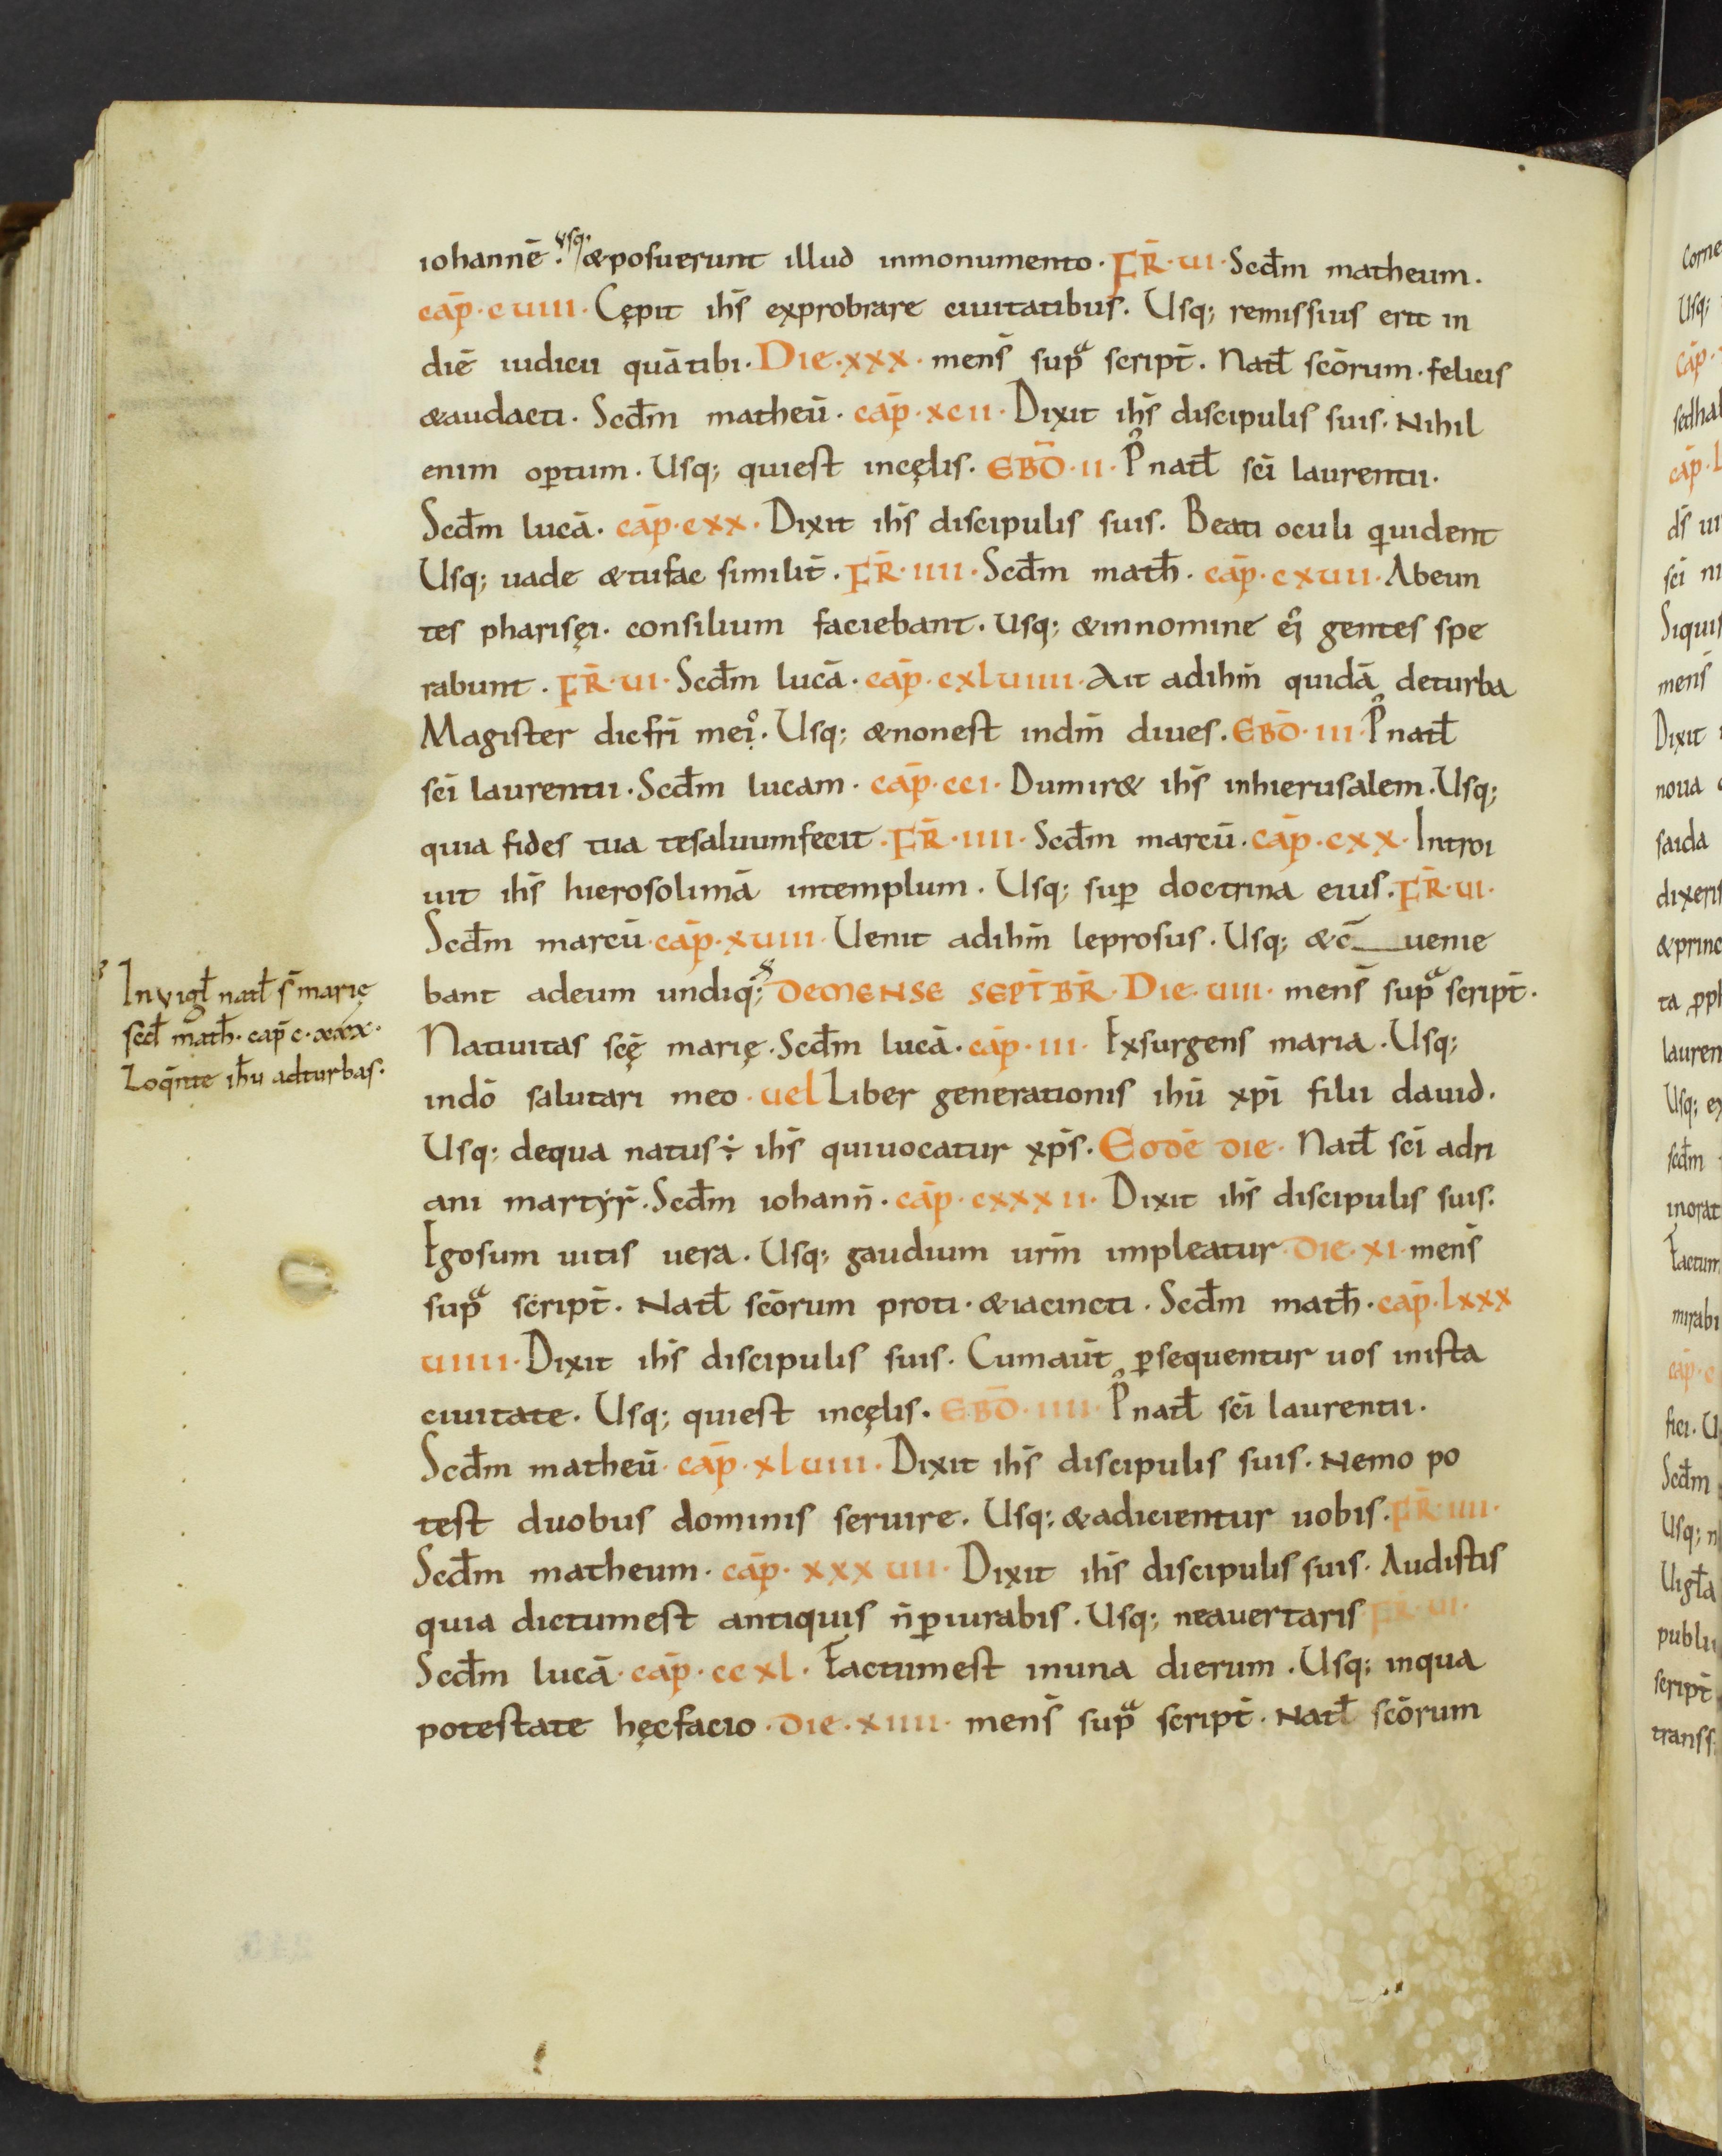 iohannē. usq. &posuerunt illud inmonumento. FR̄. UI. Scđm matheum.
cap̄. cuiiii. Cępit ihs̄ exprobrare ciuitatibus. Usq; remissius erit in
diē iudicii quātibi. Die. xxx. mens̄ supͣ script̄. Natł scōrum. felicis
&audacti. Scđm matheū. cap̄. xcii. Dixit ihs̄ discipulis suis. Nihil
enim op̱tum. Usq; quiest incęlis. EBD̄. II. P̄ natł sc̄i laurentii.
Scđm lucā. cap̄. cxx. Dixit ihs̄ discipulis suis. Beati oculi quident
Usq; uade &tufac similit̄. FR̄. IIII. Scđm math̄. cap̄. cxuii. Abeun
tes pharisęi. consilium faciebant. Usq; &innomine ei᾿ gentes spe
rabunt. FR̄. UI. Scđm lucā. cap̄. cxluiiii. Ait adihm̄ quidā deturba
Magister dicfri̅ mei᾿. Usq; &nonest indm̄ diues. EBD̄. III. P̄ natł
sc̄i laurentii. Scđm lucam. cap̄. cci. Dumir& ihs̄ inhierusalem. Usq;
quia fides tua tesaluumfecit. FR̄. IIII. Scđm marcū. cap̄. cxx. Introi
uit ihs̄ hierosolimā intemplum. Usq; sup̱ doctrina eius. FR̄. UI.
Scđm marcū. cap̄. xuiii. Uenit adihm̄ leprosus. Usq; &c̄ uenie
bant adeum undiq;. DEMENSE SEPT̄BR̄. Die. uiii. mens̄ supͣ script̄.
Inuigł natł s̄ marię
scđ math̄. cap̄ c. xxx.
Loq̄nte ihū adturbas.
Natiuitas scę̄ marię. Scđm lucā. cap̄. iii. Exsurgens maria. Usq;
indō salutari meo. uel Liber generationis ihū xp̄i filii dauid.
Usq; dequa natus÷ ihs̄ quiuocatur xp̄s. Eodē die. Natł sc̄i adri
ani martyr̄. Scđm iohann̄. cap̄. cxxxii. Dixit ihs̄ discipulis suis.
Egosum uitis uera. Usq; gaudium urm̄ impleatur. die. xi. mens̄
supͣ script̄. Natł scōrum proti. &iacincti. Scđm math̄. cap̄. lxxx
uiiii. Dixit ihs̄ discipulis suis. Cumaūt p̱sequentur uos inista
ciuitate. Usq; quiest incęlis. EBD̄. IIII. P̄ natł sc̄i laurentii.
Scđm matheū. cap̄. xluiii. Dixit ihs̄ discipulis suis. Nemo po
test duobus dominis seruire. Usq; &adicientur uobis. FR̄. IIII.
Scđm matheum. cap̄. xxxuii. Dixit ihs̄ discipulis suis. Audistis
quia dictumest antiquis n̄p̱iurabis. Usq; neauertaris FR̄. UI.
Scđm lucā. cap̄. ccxl. Factumest inuna dierum. Usq; inqua
potestate hęcfacio. die. xiiii. mens̄ supͣ script̄. Natł scōrum